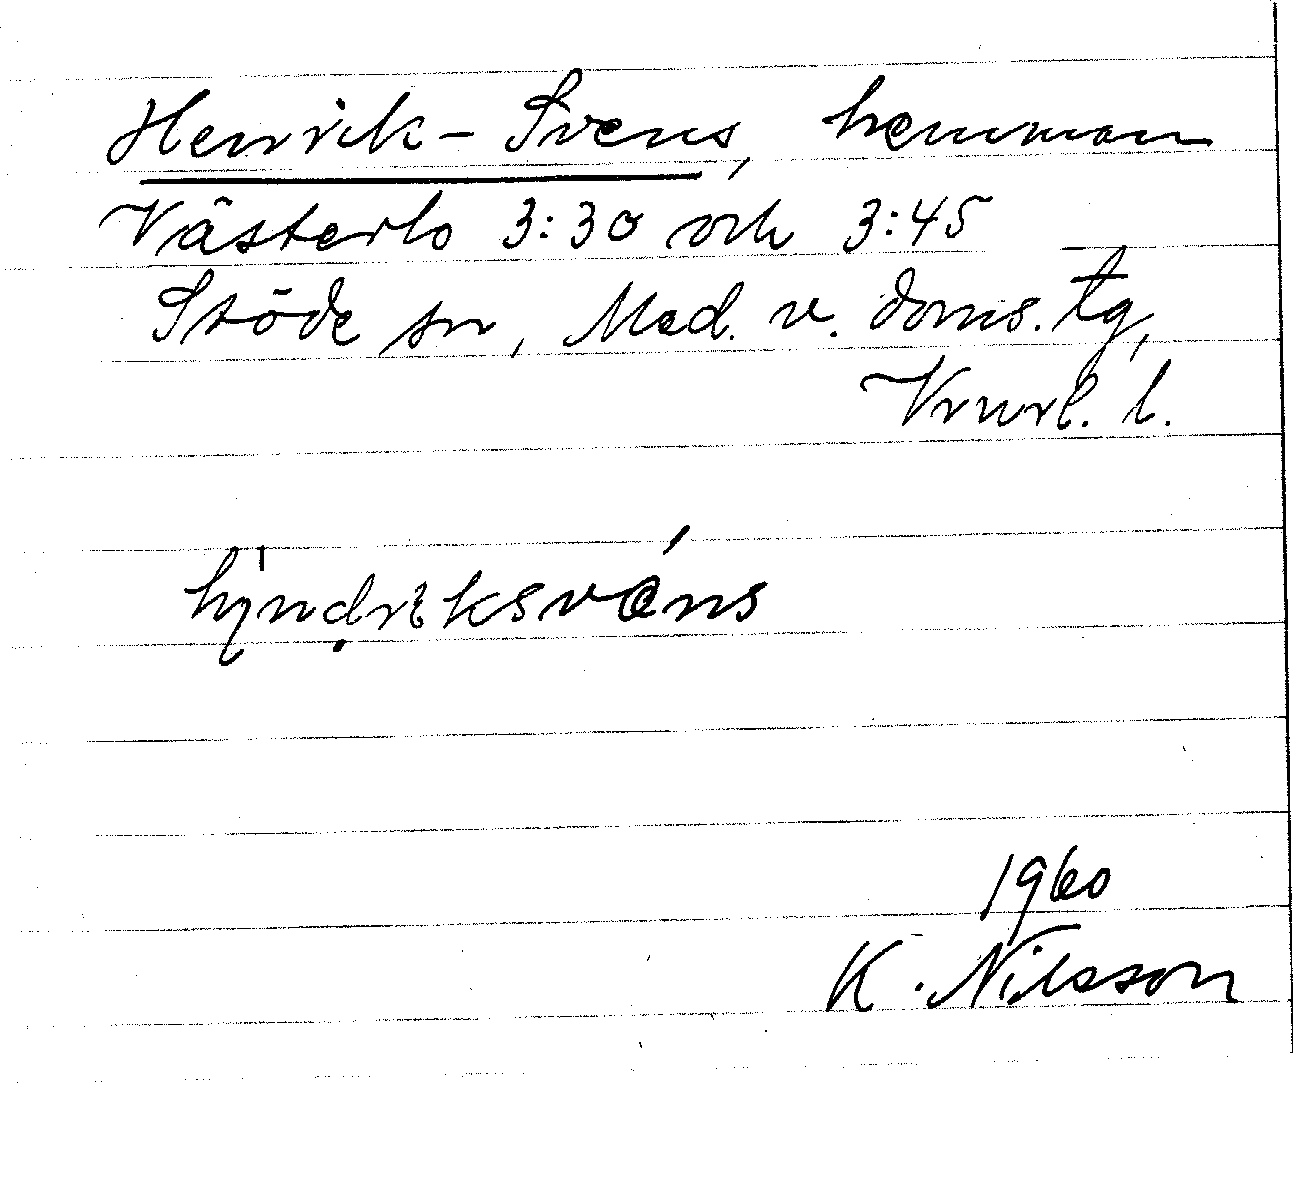 Henrik-Svens, hemman
Västerlo 3:30 och 3:45
Stöde sn, Med. v. doms. tg,
Vrnrl. l.
hyndriksvéns
1960
K. Nilsson